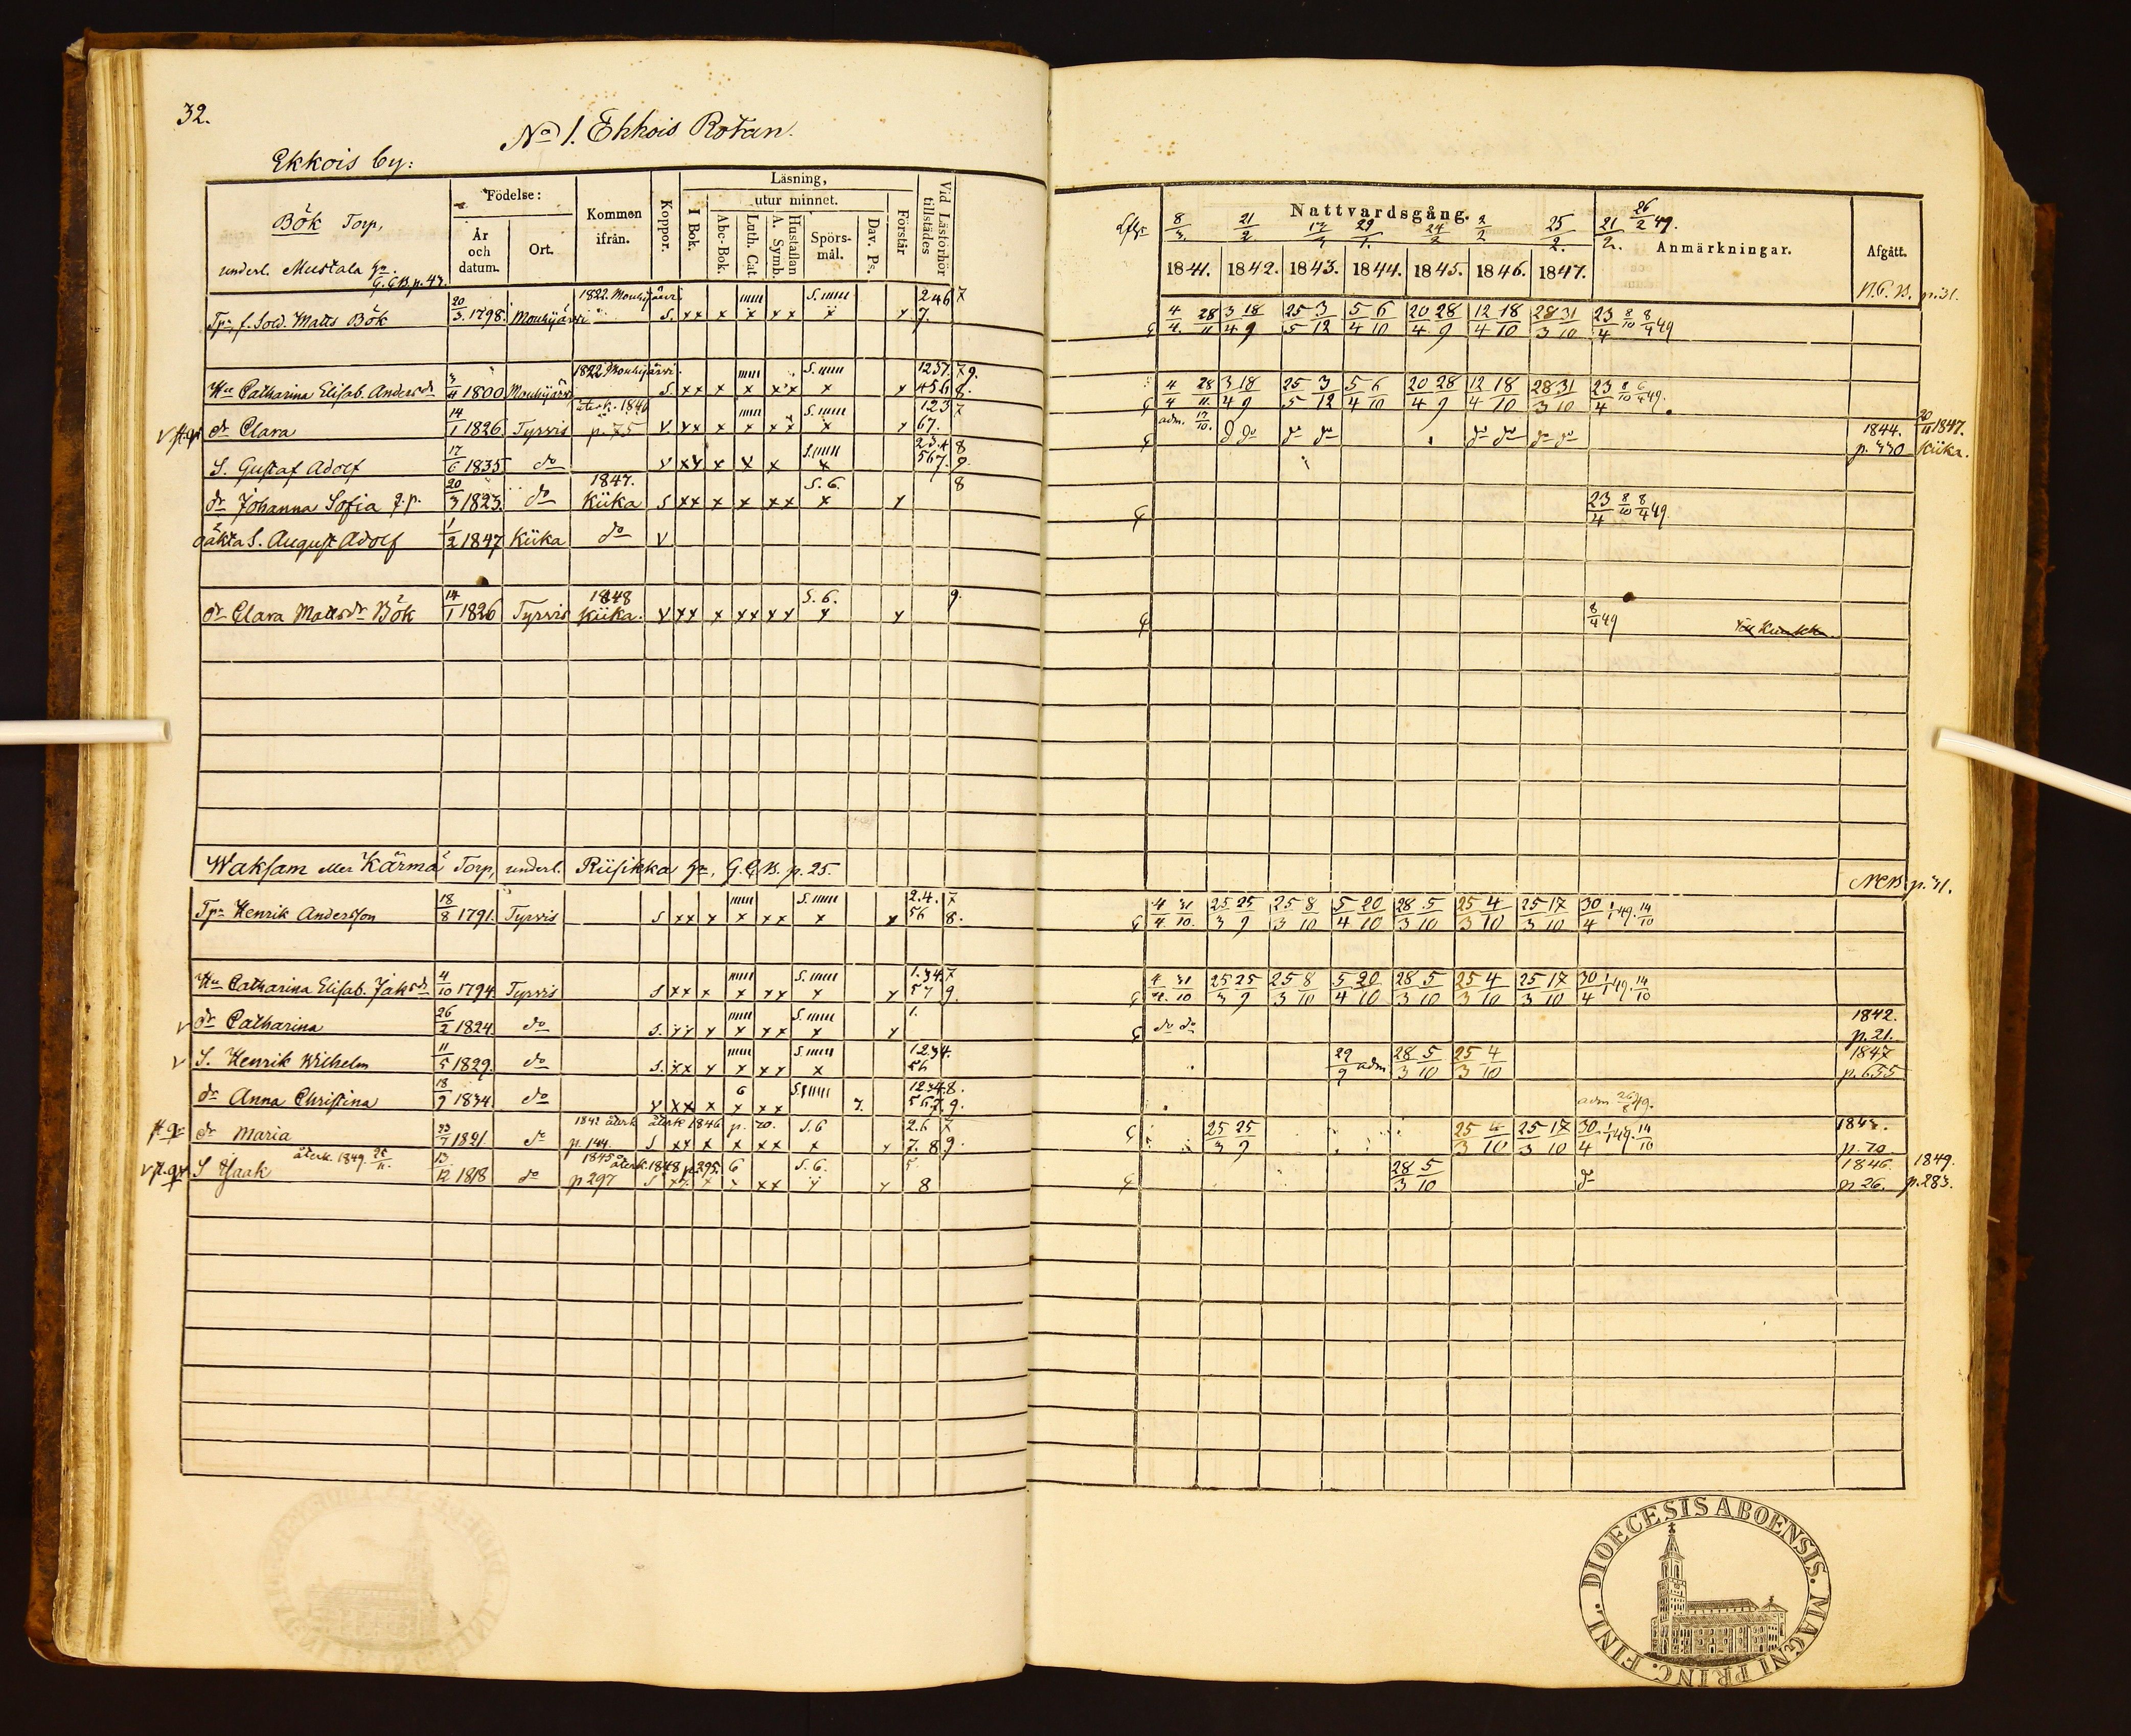 32.
No 1. Ekkois Rotan.
Ekkois by:
Bök Torp,
underl. Mustala hn.
G.C.B. p. 43.
Födelse:
År och datum.
Ort.
Kommen ifrån.
Koppor.
Läsning,
I Bok.
utur minnet.
Abc-Bok.
Luth. Cat.
Hustaflan A. Symb.
Spörs-mål.
Dav. Ps.
Förstår
Vid Läsförhör tillstädes
Nattvardsgång.
8/3. 21/2 29/1. 2/2 25/2. 21/2. 26/2 49.
1841. 1842. 1843. 1844. 1845. 1846. 1847.
Anmärkningar.
Afgått.
N.C.B. p. 31.
Tpr, f. Sold. Matts Bök 20/3. 1798. Mouhijärvi 1822. Mouhijärvi S. xx x x xx S. x x 246 7 7.
4/4. 28/11 3/4 18/9 25/5 3/12 5/4 6/10 20/4 28/9 12/4 18/10 28/3 31/10 23/4 8/10 8/4 49
Hu Catharina Elisab. Andersdr 3/11 1800 Mouhijärvi 1822 Mouhijärvi. S xx x x xx S. x x 1237. 79. 456 8.
4/4 28/11. 3/4 18/9 25/5 3/12 5/4 6/10 20/4 28/9 12/4 18/10 28/3 31/10 23/4 8/10 6/4 49.
dr Clara 14/1 1826. Tyrvis återk. 1846 p. 75 V. xx x x xx S. x x 123 7 67.
adm. 17/10. do do do do do do do 1844. p. 330 20/11 1847. Kiika.
S. Gustaf Adolf 17/6 1835 do V xx x x x S. x 234 8 567. 9.
dr Johanna Sofia 20/3 1823. do 1847. Kiika S xx x x xx S. 6. x x 8
23/4 8/10 8/4 49.
oäkta S. August Adolf 1/2 1847 Kiika do V
dr Clara Mattsdr Bök 14/1 1826 Tyrvis 1848 Kiika. V xx x xx xx S. 6. x x 9.
8/4 49
Waksam eller Kärmä Torp, underl. Riisikka hn, G.C.B. p. 25.
NCB p. 31.
Tpr Henrik Andersson 18/8 1791. Tyrvis S xx x x xx S. x x 2.4. 56 8.
4/4. 31/10. 25/3 25/9 25/3 8/10 5/4 20/10 28/3 5/10 25/3 4/10 25/3 17/10 30/4 1/1 49. 14/10
Hu Catharina Elisab. Jaksdr 4/10 1794 Tyrvis S xx x x xx S. x x 1.347 57 9.
4/4. 31/10 25/3 25/9 25/3 8/10 5/4 20/10 28/3 5/10 25/3 4/10 25/3 17/10 30/4 1/1 49. 14/10
dr Catharina 26/2 1824. do S. xx x x xx S. x x 1.
do do 1842. p. 21.
S. Henrik Wilhelm 11/5 1829. do S. xx x x xx S. x 1234. 56
29/9 adm 28/3 5/10 25/3 4/10 1847 p. 655
dr Anna Christina 18/9 1834. do V xx x 6 x xx S. 7. 12348. 567 9.
adm 26/8 49.
dr Maria 23/7 1821 do 1842 återk p. 144. återk 1846 p. 70. S xx x x xx S. 6 x x 2.6 7 7. 8 9.
25/3 25/9 25/3 4/10 25/3 17/10 30/4 1/1 49. 14/10 1843. p. 70
S Isaak återk. 1849. 25/11. 13/12 1818 do 1845 p 297 återk. 1848 p. 295. S xx x 6 x xx S. 6. x x 5 8
28/3 5/10 do 1846. p 26. 1849. p. 283.
DIOECESIS ABOENSIS. MAGNI PRINC. FINL.